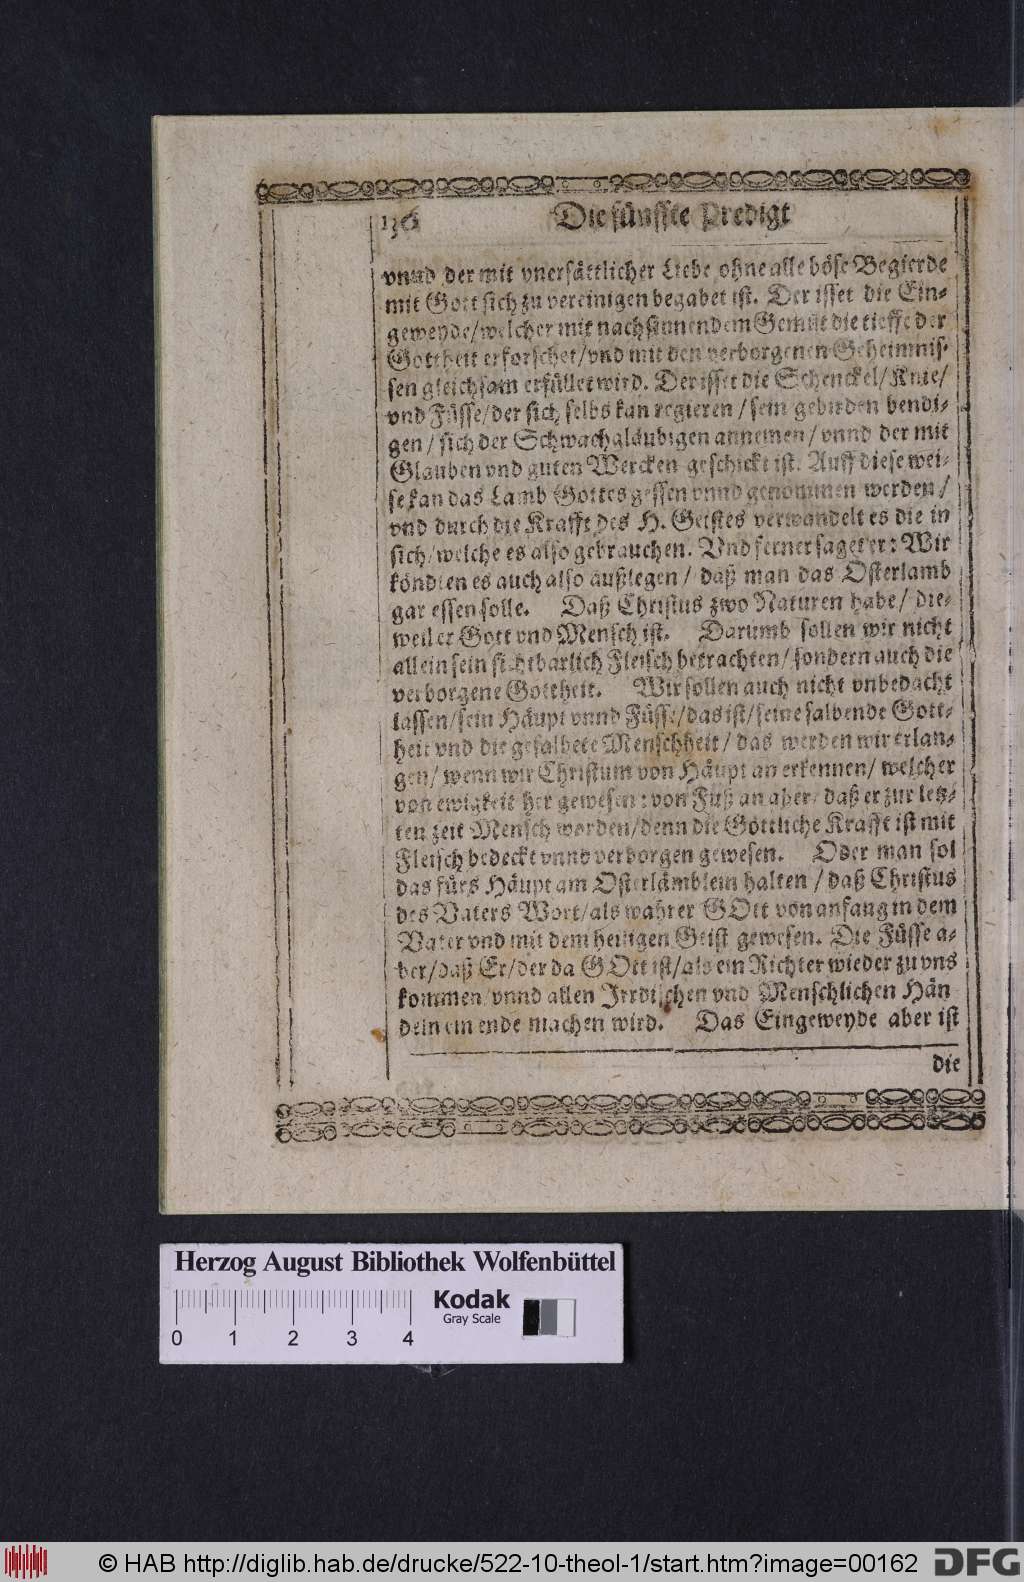 136 Die fünffte Predigt
vnnd der mit vnersättlicher Liebe ohne alle böse Begierde
mit Gott sich zu vereinigen begabet ist. Der isset die Ein-
geweyde/welcher mit nachsinnendem Gemüt die tieffe der
Gottheit erforschet/vnd mit den verborgenen Geheimnis-
sen gleichsam erfüllet wird. Der isset die Schenckel/Knie/
vnd Füsse/der sich selbs kan regieren/sein gebirden bendi-
gen/sich der Schwachgläubigen annemen/vnnd der mit
Glauben vnd guten Wercken geschickt ist. Auff diese wei-
se kan das Lamb Gottes gessen vnnd genommen werden/
vnd durch die Krafft des H. Geistes verwandelt es die in
sich/welche es also gebrauchen. Vnd ferner saget er: Wir
köndten es auch also außlegen/daß man das Osterlamb
gar essen solle. Daß Christus zwo Naturen habe/die-
weil er Gott vnd Mensch ist. Darumb sollen wir nicht
allein sein sichtbarlich Fleisch betrachten/sondern auch die
verborgene Gottheit. Wir sollen auch nicht vnbedacht
lassen/sein Häupt vnnd Füsse/das ist/seine salbende Gott-
heit vnd die gesalbete Menschheit/das werden wir erlan-
gen/wenn wir Christum von Häupt an erkennen/welcher
von ewigkeit her gewesen: von Fuß an aber/daß er zur letz-
ten zeit Mensch worden/denn die Göttliche Krafft ist mit
Fleisch bedeckt vnnd verborgen gewesen. Oder man sol
das fürs Häupt am Osterlämblein halten/daß Christus
des Vaters Wort/als wahrer GOtt von anfang in dem
Vater vnd mit dem heiligen Geist gewesen. Die Füsse a-
ber/daß Er/der da GOtt ist/als ein Richter wieder zu vns
kommen/vnnd allen Irrdischen vnd Menschlichen Hän
deln ein ende machen wird. Das Eingeweyde aber ist
die
Herzog August Bibliothek Wolfenbüttel
Kodak
Gray Scale
0 1 2 3 4
© HAB http://diglib.hab.de/drucke/522-10-theol-1/start.htm?image=00162 DFG